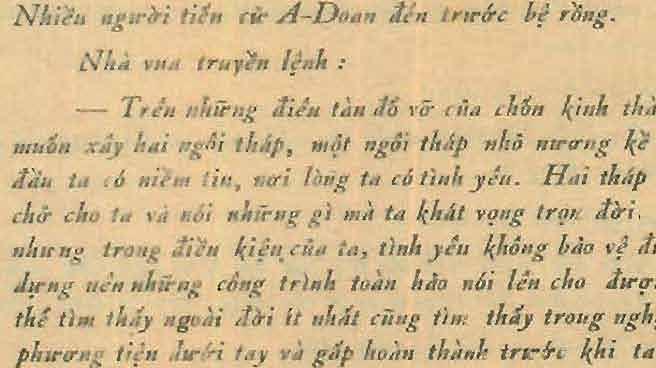 Nhiều người tiến cử A-Doan đến trước bệ rồng.
Nhà vua truyền lệnh :
— Trên những điêu tàn đổ vỡ của chốn kinh thà
muốn xây hai ngôi tháp, một ngôi tháp nhỏ nương kề
đầu ta có niềm tin, nơi lòng ta có tình yêu. Hai tháp
chở cho ta và nói những gì mà ta khát vọng trọn đời.
nhưng trong điều kiện của ta, tình yêu không bảo vệ đư
dựng nên những công trình toàn hảo nói lên cho đượ
thể tìm thấy ngoài đời ít nhất cũng tìm thấy trong ngh
phương tiện dưới tay và gấp hoàn thành trước khi ta